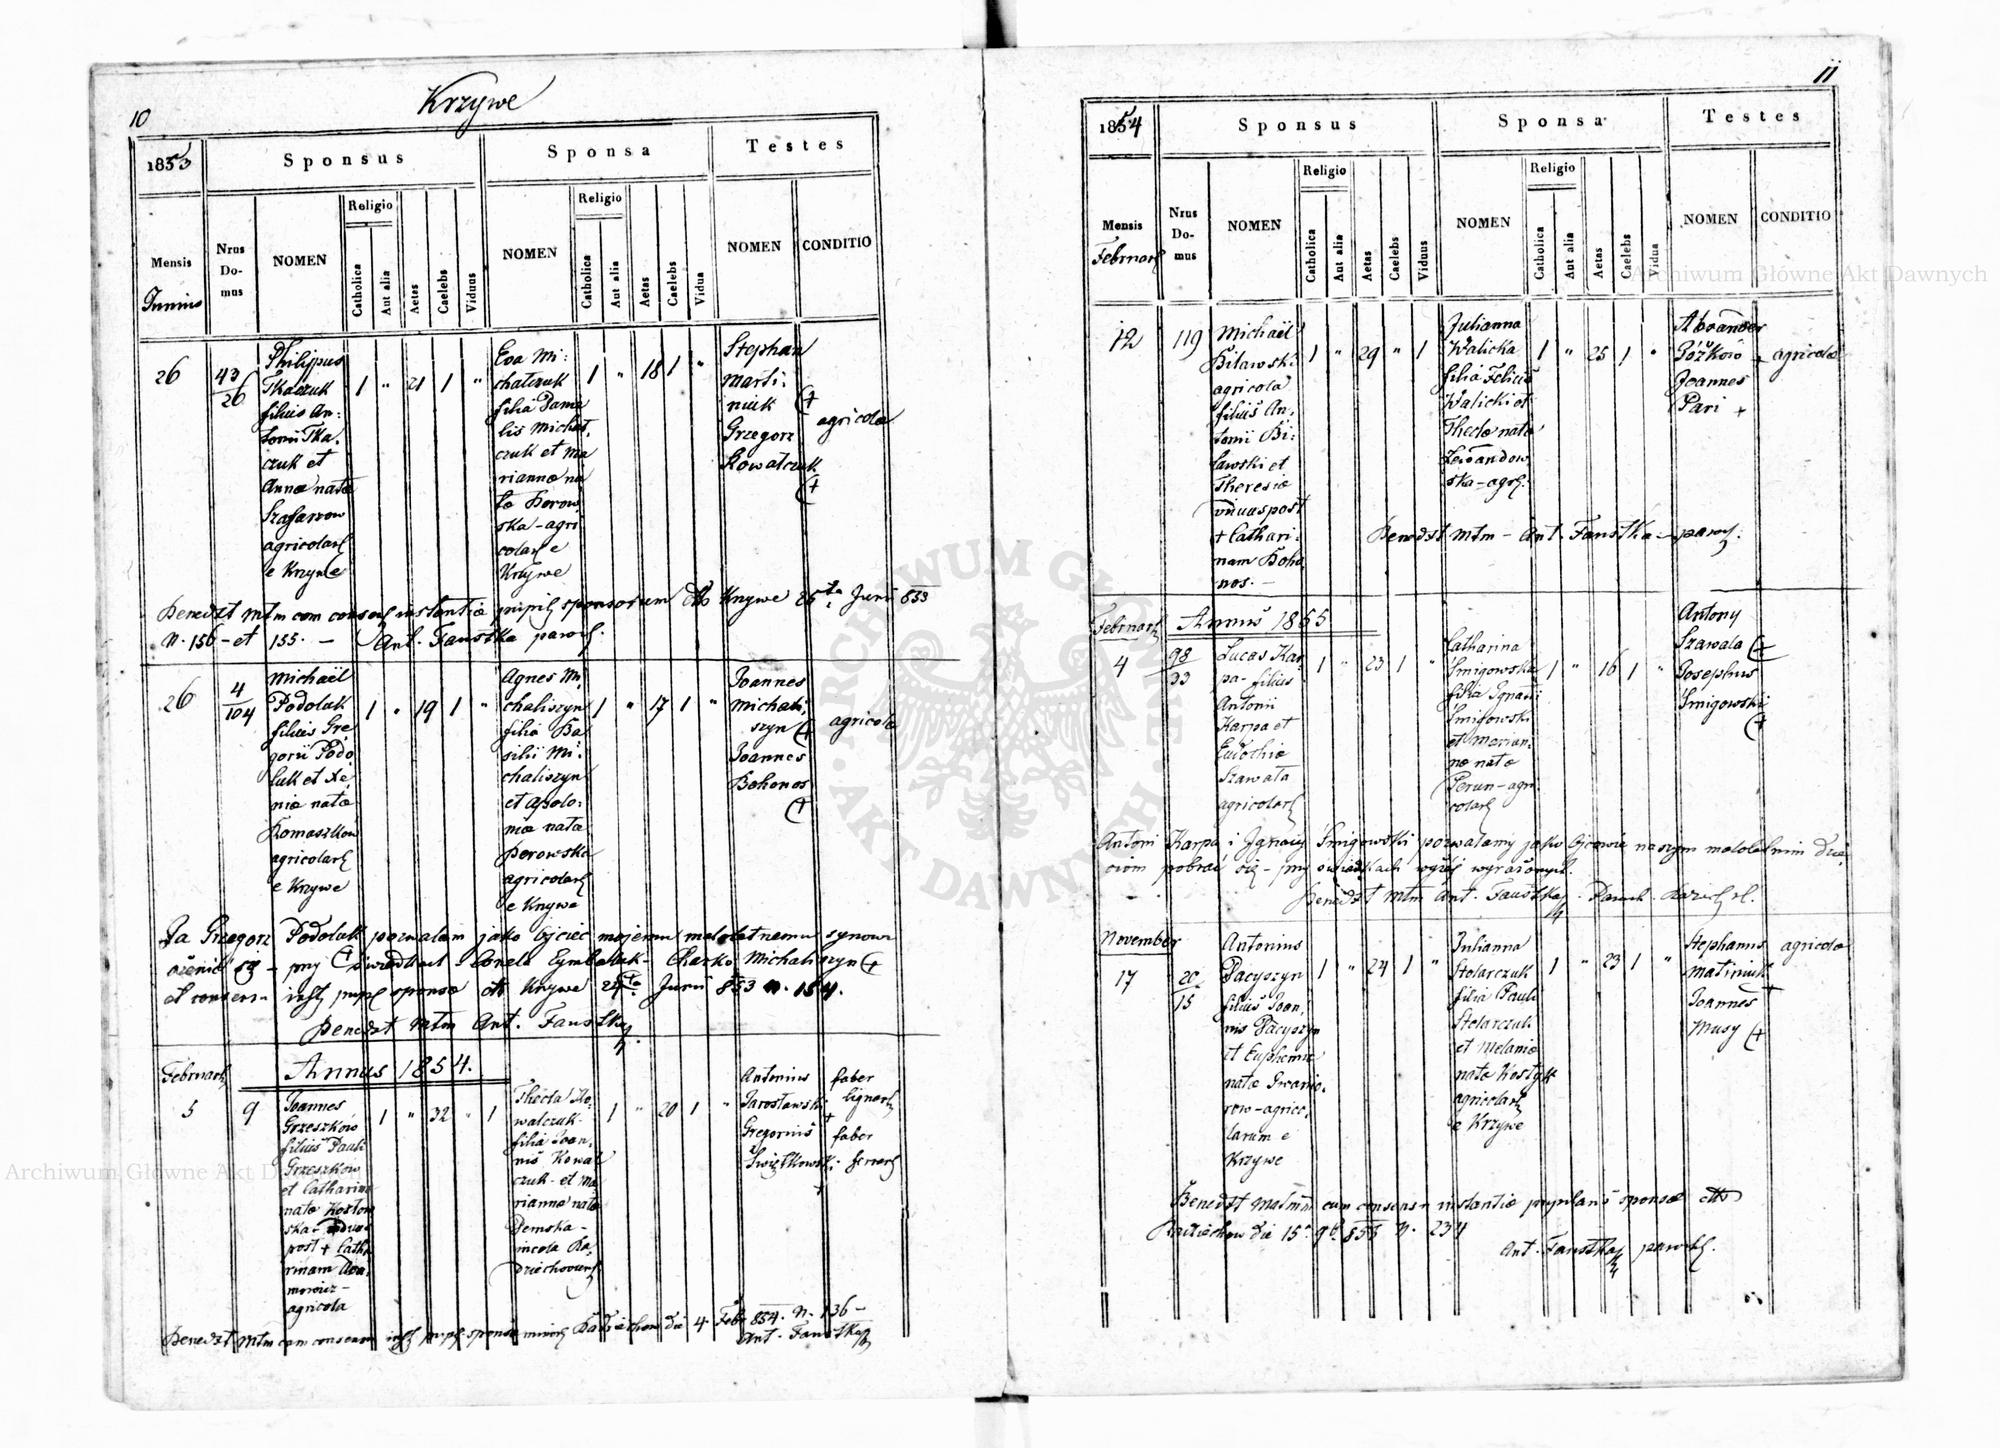 10
Krzywe
1853
Sponsus
Sponsa
Testes
Mensis
Junius
Nrus
Do-
mus
NOMEN
Religio
Catholica
Aut alia
Aetas
Caelebs
Viduus
NOMEN
Religio
Catholica
Aut alia
Aetas
Caelebs
Vidua
NOMEN
CONDITIO
26
43
26
Philippus
Tkaczuk
filius An:
tonii Tka,
czuk et
Annæ natæ
Szafarrow
agricolar
e Krzywe
1 " 21 1 "
Eva Mi:
chalczuk
filia Dama
lis Michal,
czuk et Ma
riannæ na
tæ Borow
ska - agri
colar e
Krzywe
1 " 18 1 "
Stephan
Marti:
niuk
Grzegorz
Kowalczuk
agricolæ
Benedxt Mtm cum consens instantiæ pupil sponsorum dto Krzywe 26ta Junii 853
N. 156 - et 155. - Ant. Faustka paroch.
26
4
104
Michaël
Podolak
filius Gre
gorii Podo
luk et Xe
niæ natæ
Romaszków
agricolar
e Krzywe
1 " 19 1 "
Agnes Mi,
chaliszyn
filia Ba
silii Mi:
chaliszyn
et Apolo:
niæ natæ
Borowska
agricolar
e Krzywe
1 " 17 1 "
Joannes
Michali,
szyn
Joannes
Bohonos
agricolæ
Ja Grzegorz Podolak pozwalam jako Ojciec mojemu małoletnemu synowi
ożenić się - przy świadkach Cymbaluk - Charko Michaliszyn
et consens inst pupl sponsæ dto Krzywe Junii 853 N. 154.
Benedxt Mtm Ant. Faustka
Februar
Annus 1854.
5
9
Joannes
Grzeszków
filius Pauli
Grzeszków
et Catharinæ
natæ Kozłow
ska - viduus
post + Catha
rinam Ada,
mowicz -
agricola
1 " 32 " 1
Thecla Ko,
walczuk -
filia Joan,
nis Kowal
czuk - et Ma
riannæ natæ
Demska -
incola Ra,
dziechov
1 " 20 1 "
Antonius
Jarosławski
Gregorius
Świętkowski
faber
lignar
faber
ferrar
Benedxt Mtm cum consensu inst pupl sponsæ minor Radziechow die 4. Feb 854. N. 136 -
Ant. Faustka
11
1854
Sponsus
Sponsa
Testes
Mensis
Februar
Nrus
Do-
mus
NOMEN
Religio
Catholica
Aut alia
Aetas
Caelebs
Viduus
NOMEN
Religio
Catholica
Aut alia
Aetas
Caelebs
Vidua
NOMEN
CONDITIO
12
119
Michaël
Biławski
agricola
filius An,
tonii Bi:
ławski et
Theresiæ
viduus post
+ Cathari:
nam Boho
nos. -
1 " 29 " 1
Julianna
Walicka
filia Felicis
Walicki et
Theclæ natæ
Lewandow
ska - agr.
1 " 25 1 "
Joannes
Pari +
agricolæ
Benedxt Mtm - Ant. Faustka - paroch.
Februar
Annus 1855
4
98
33
Lucas Kar
pa - filius
Antonii
Karpa et
Eudochiæ
Szawała
agricolar
1 " 23 1 "
Catharina
Śmigowska
filia Ignatii
Śmigowski
et Marian,
næ natæ
Perun - agri
colar
1 " 16 1 "
Antony
Szawala
Josephus
Śmigowski
Antoni Karpa i Ignacy Śmigowski pozwalamy jako Ojcowie naszym małoletnim dzie,
ciom pobrać się - przy świadkach wyżej wyrażonych.
Benedxt Mtm Ant. Faustka
November
17
20
15
Antonius
Pacyszyn
filius Joan,
nis Pacyszyn
et Euphemiæ
natæ
row - agrico,
larum e
Krzywe
1 " 24 1 "
Julianna
Stolarczuk
filia Pauli
Stolarczuk
et Melaniæ
natæ Kostyk
agricolar
e Krzywe
1 " 23 1 "
Stephanus
Matiniuk
+
Joannes
Musy
agricolæ
Benedxt Matrim cum consensu instantiæ pupilaris sponsæ dto
Radziechow die 15ta 9b. 855 N. 234
Ant. Faustka paroch.
Archiwum Główne Akt Dawnych
Archiwum Główne Akt Dawnych
ARCHIWUM GŁÓWNE · AKT DAWNYCH ·